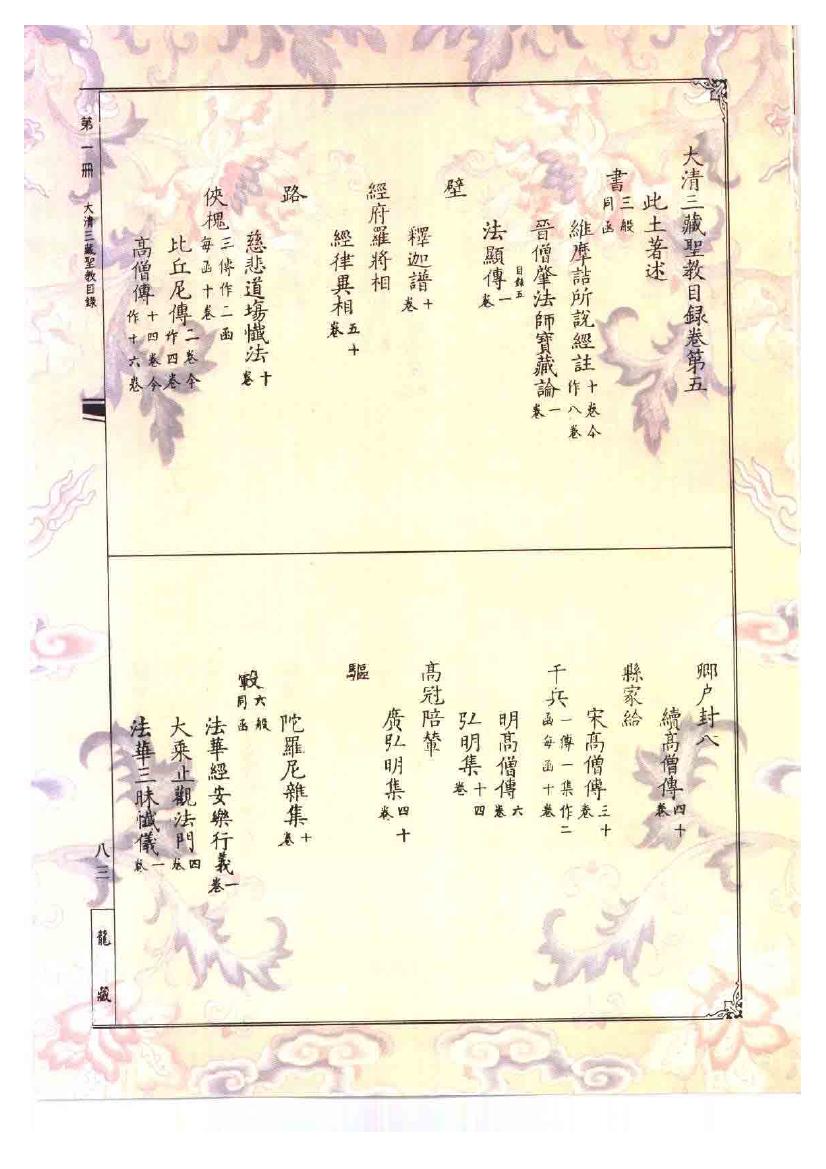 大清三藏聖教目録卷第五
此土著述
書三般同函
維摩詰所說經註十卷今作八卷
晉僧肇法師寶藏論一卷
法顯傳一卷
目録五
壁
釋迦譜十卷
經府羅將相
經律異相五十卷
路
慈悲道場懺法十卷
俠槐三傳作二函每函十卷
比丘尼傳二卷今作四卷
高僧傳十四卷今作十六卷
鄉户封八
續高僧傳四十卷
縣家給
宋高僧傳三十卷
千兵一傳一集作二函每函十卷
明高僧傳六卷
弘明集十四卷
高冠陪輦
廣弘明集四十卷
驅
陀羅尼雜集十卷
轂六般同函
法華經安樂行義一卷
大乘止觀法門四卷
法華三昧懺儀一卷
第一冊 大清三藏聖教目錄
八三
龍藏